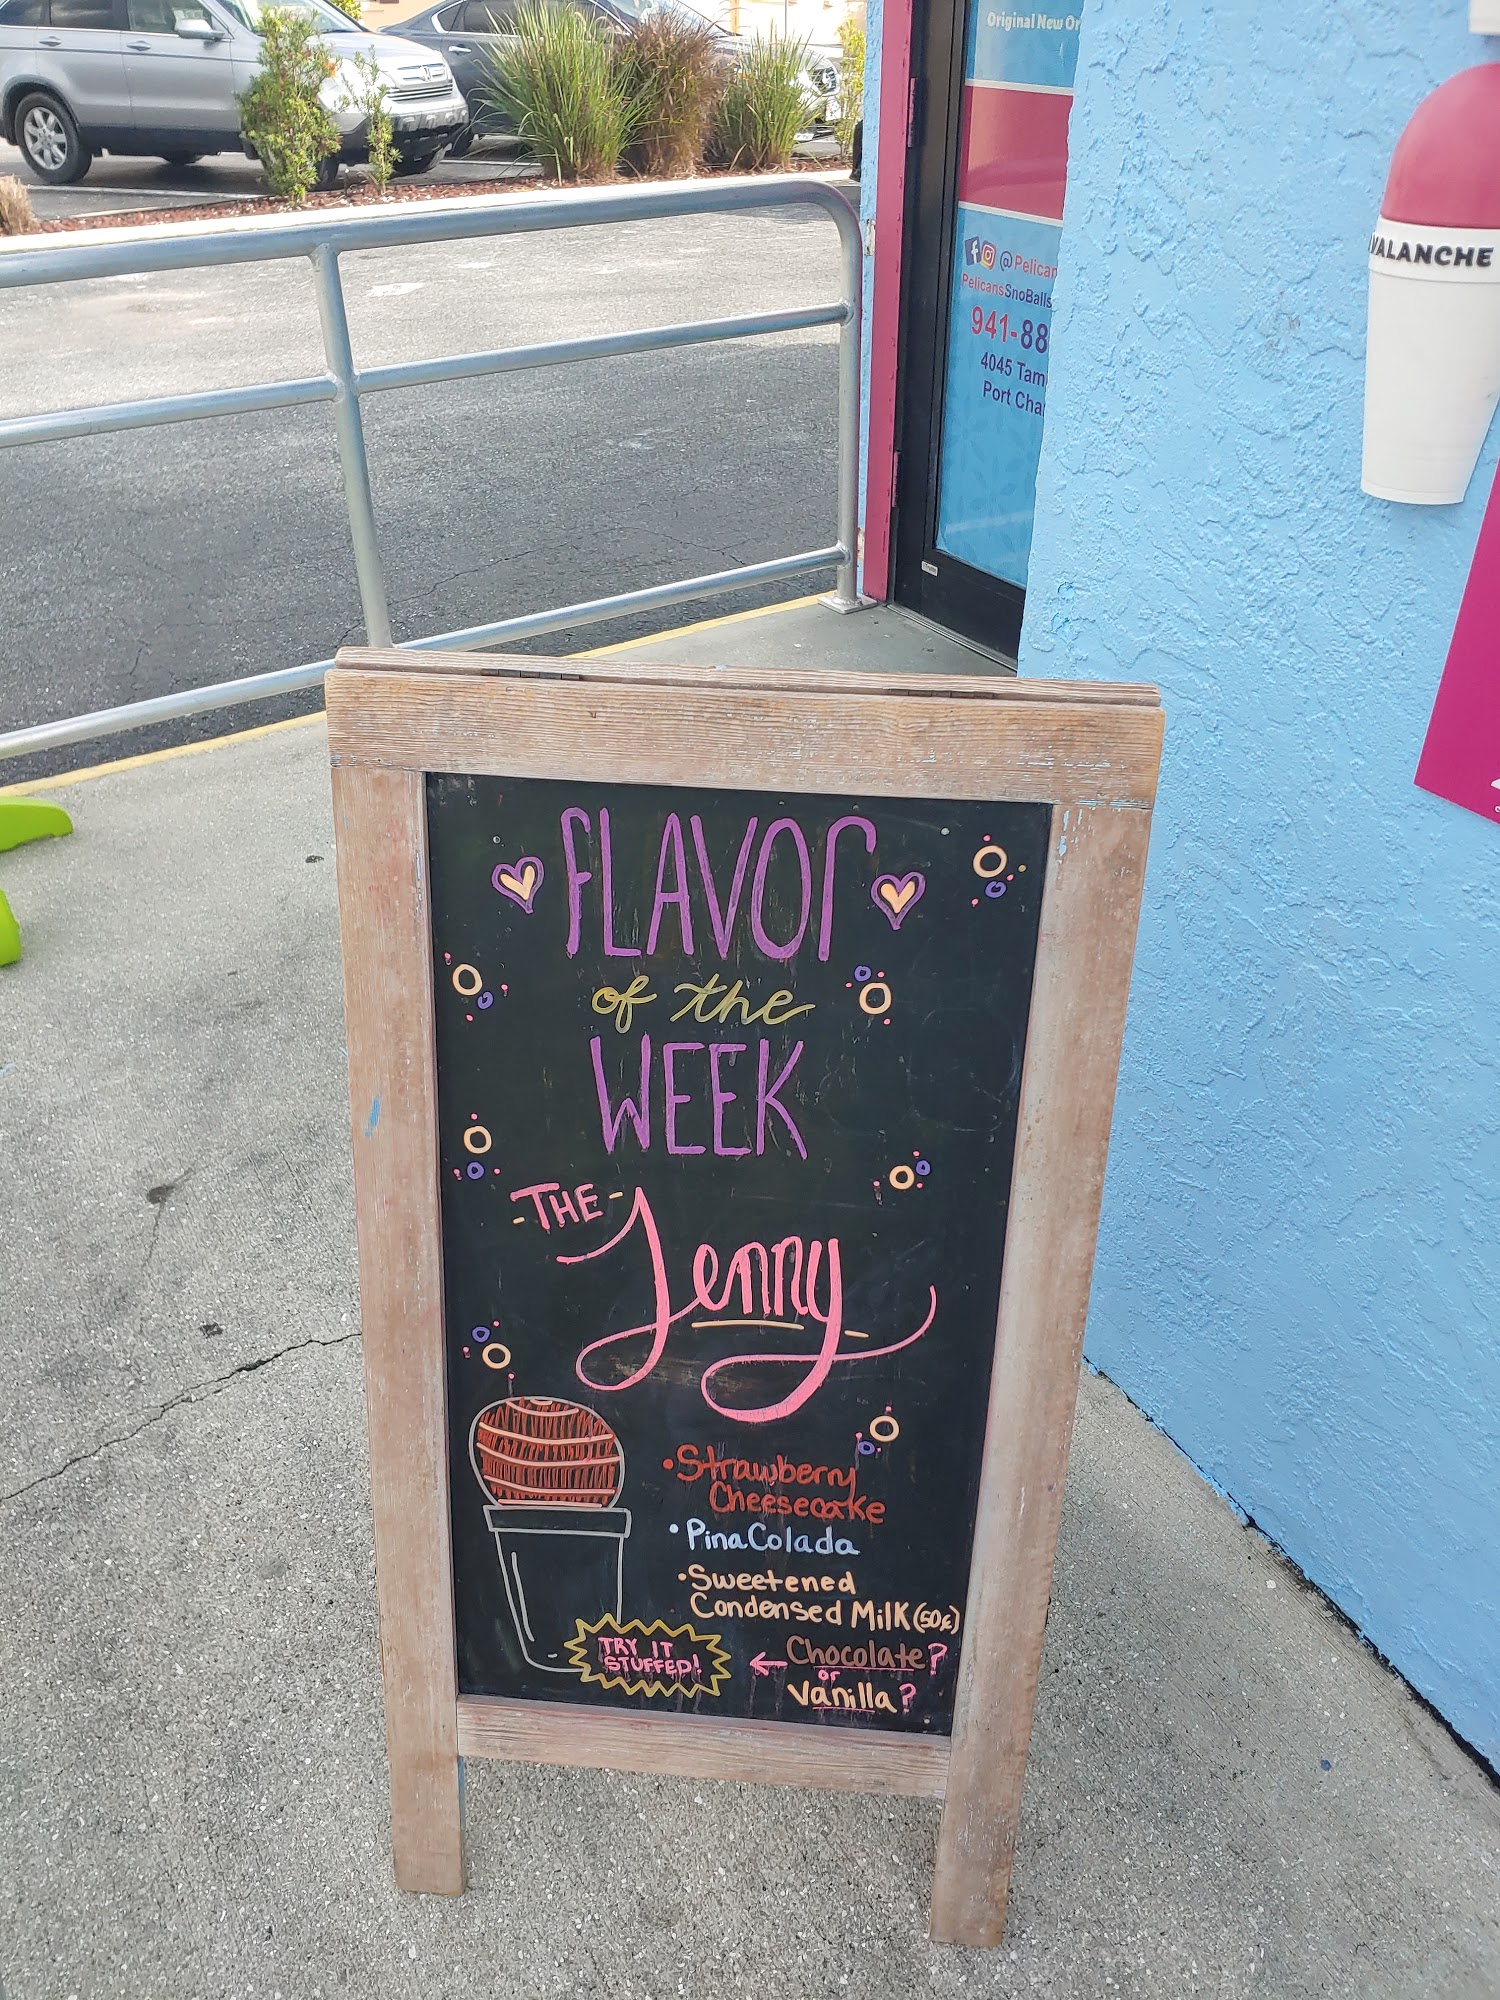 Original New Or
@Pelican
PelicansSnoBalls
941-88
4045 Tam
Port Cha
AVALANCHE
FLAVOR
of the
WEEK
-THE-
Jenny
• Strawberry
Cheesecake
• Pina Colada
• Sweetened
Condensed Milk (50¢)
TRY IT
STUFFED!
← Chocolate?
or
Vanilla?